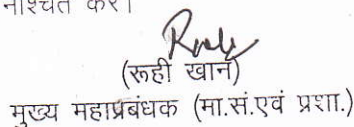 निश्चित करें।
(रूही खान)
मुख्य महाप्रबंधक (मा.सं.एवं प्रशा.)